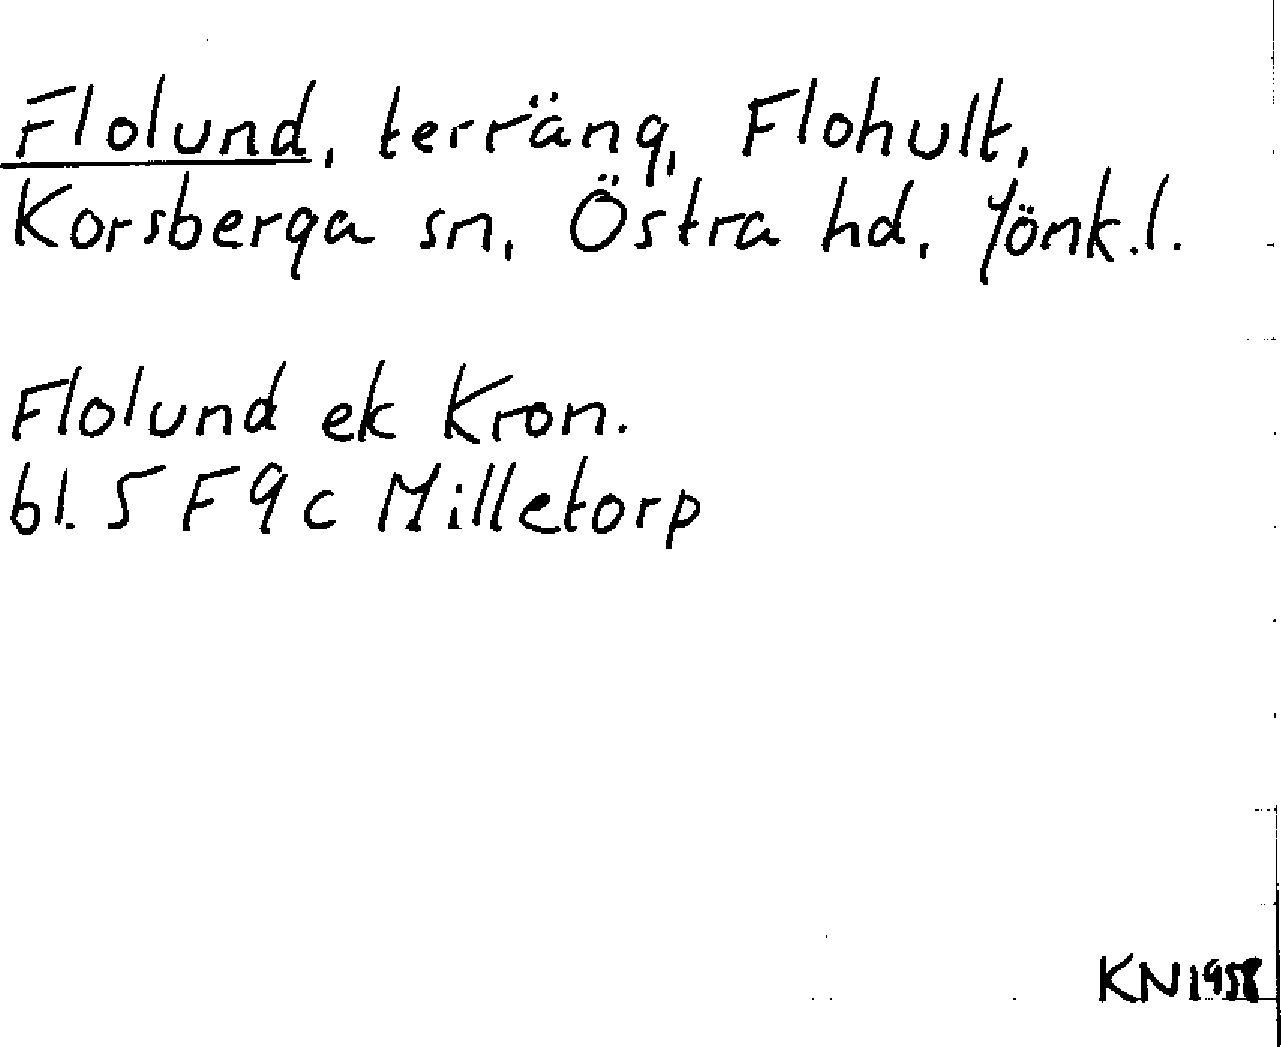 Flolund, terräng, Flohult,
Korsberga sn, Östra hd, Jönk.l.
Flolund ek Kron.
bl. 5 F 9 c Milletorp
KN 1958